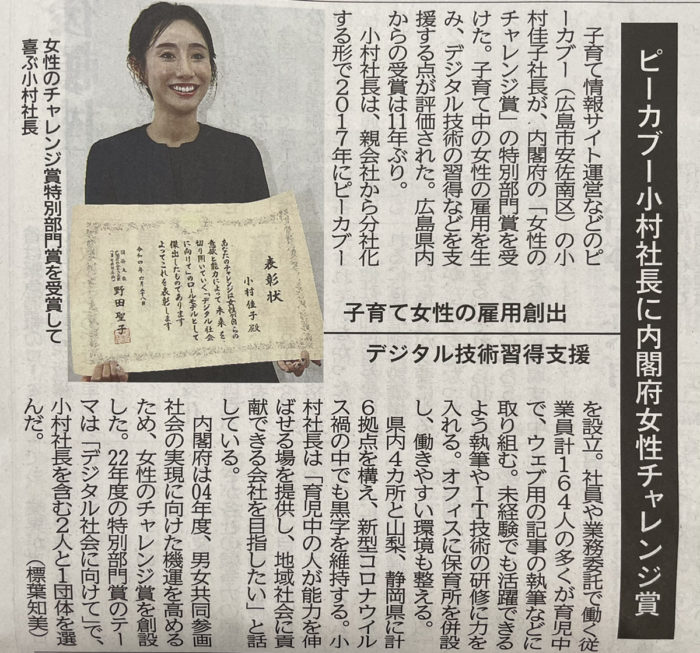 ピーカブー小村社長に内閣府女性チャレンジ賞
子育て女性の雇用創出
デジタル技術習得支援
子育て情報サイト運営などのピ
ーカブー（広島市安佐南区）の小
村佳子社長が、内閣府の「女性の
チャレンジ賞」の特別部門賞を受
けた。子育て中の女性の雇用を生
み、デジタル技術の習得などを支
援する点が評価された。広島県内
からの受賞は11年ぶり。
小村社長は、親会社から分社化
する形で2017年にピーカブー
を設立。社員や業務委託で働く従
業員計164人の多くが育児中
で、ウェブ用の記事の執筆などに
取り組む。未経験でも活躍できる
よう執筆やIT技術の研修に力を
入れる。オフィスに保育所を併設
し、働きやすい環境も整える。
県内4カ所と山梨、静岡県に計
6拠点を構え、新型コロナウイル
ス禍の中でも黒字を維持する。小
村社長は「育児中の人が能力を伸
ばせる場を提供し、地域社会に貢
献できる会社を目指したい」と話
している。
内閣府は04年度、男女共同参画
社会の実現に向けた機運を高める
ため、女性のチャレンジ賞を創設
した。22年度の特別部門賞のテー
マは「デジタル社会に向けて」で、
小村社長を含む2人と1団体を選
んだ。
（標葉知美）
女性のチャレンジ賞特別部門賞を受賞して
喜ぶ小村社長
表彰状
小村佳子殿
あなたのチャレンジは女性が自らの
意欲と能力によって未来を
切り開いていく「デジタル社会
に向けて」のロールモデルとして
傑出したものであります
よってこれを表彰します
野田聖子